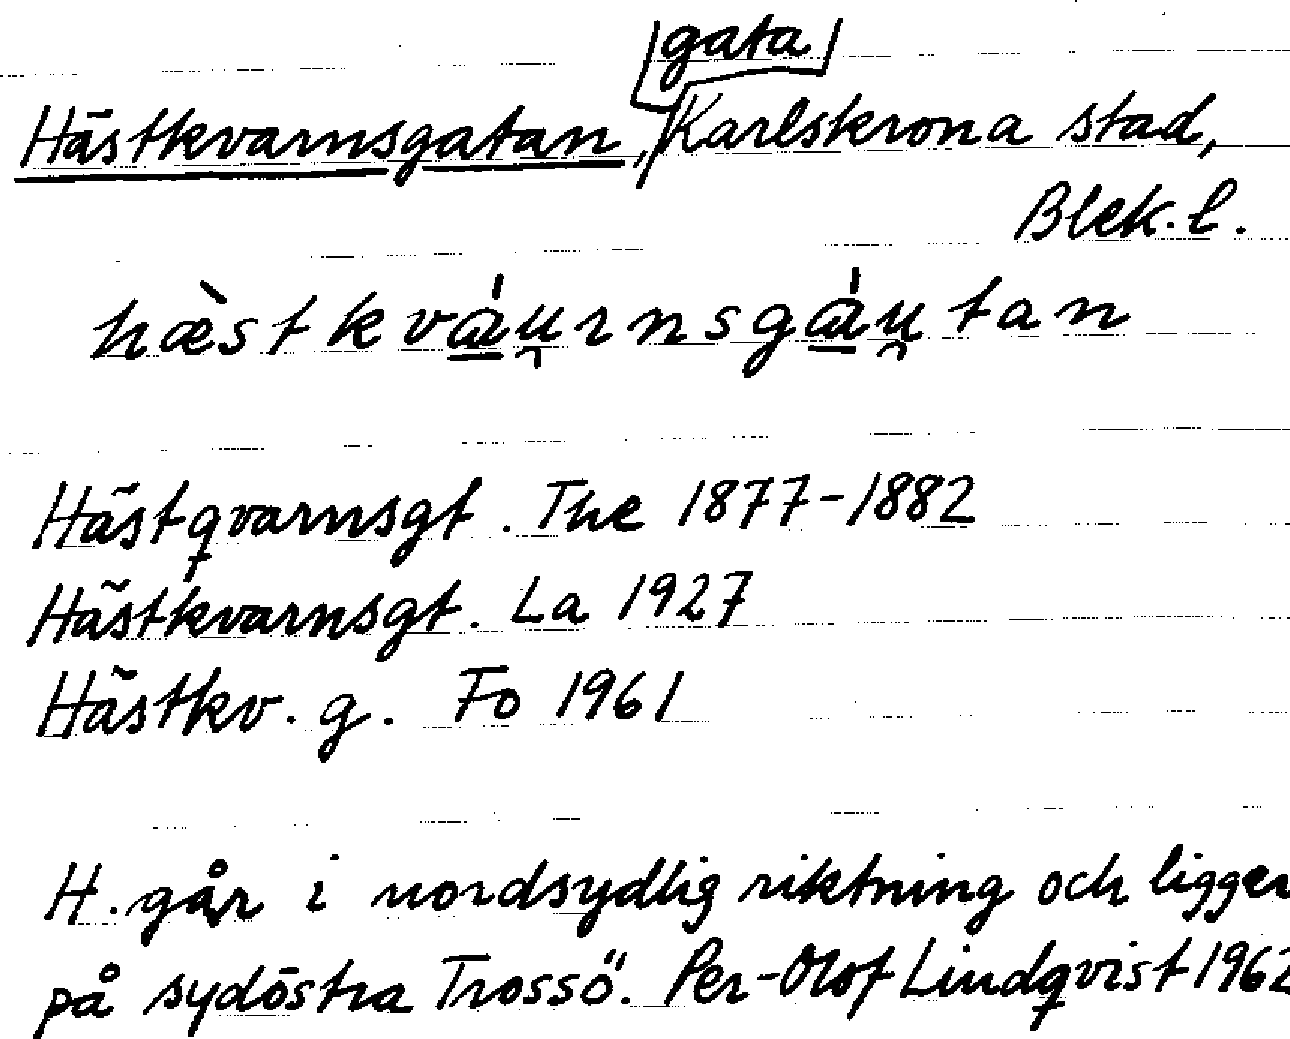 gata
Hästkvarnsgatan, Karlskrona stad,
Blek. l.
hæ̀stkvɑ́u̯rnsgɑ́u̯tan
Hästqvarnsgt. The 1877-1882
Hästkvarnsgt. La 1927
Hästkv. g. Fo 1961
H. går i nordsydlig riktning och ligger
på sydöstra Trossö. Per-Olof Lindqvist 1962